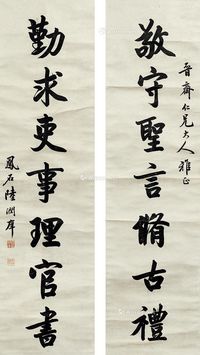 敬守聖言脩古禮
晉齋仁兄大人雅正
勤求吏事理官書
鳳石陸潤庠